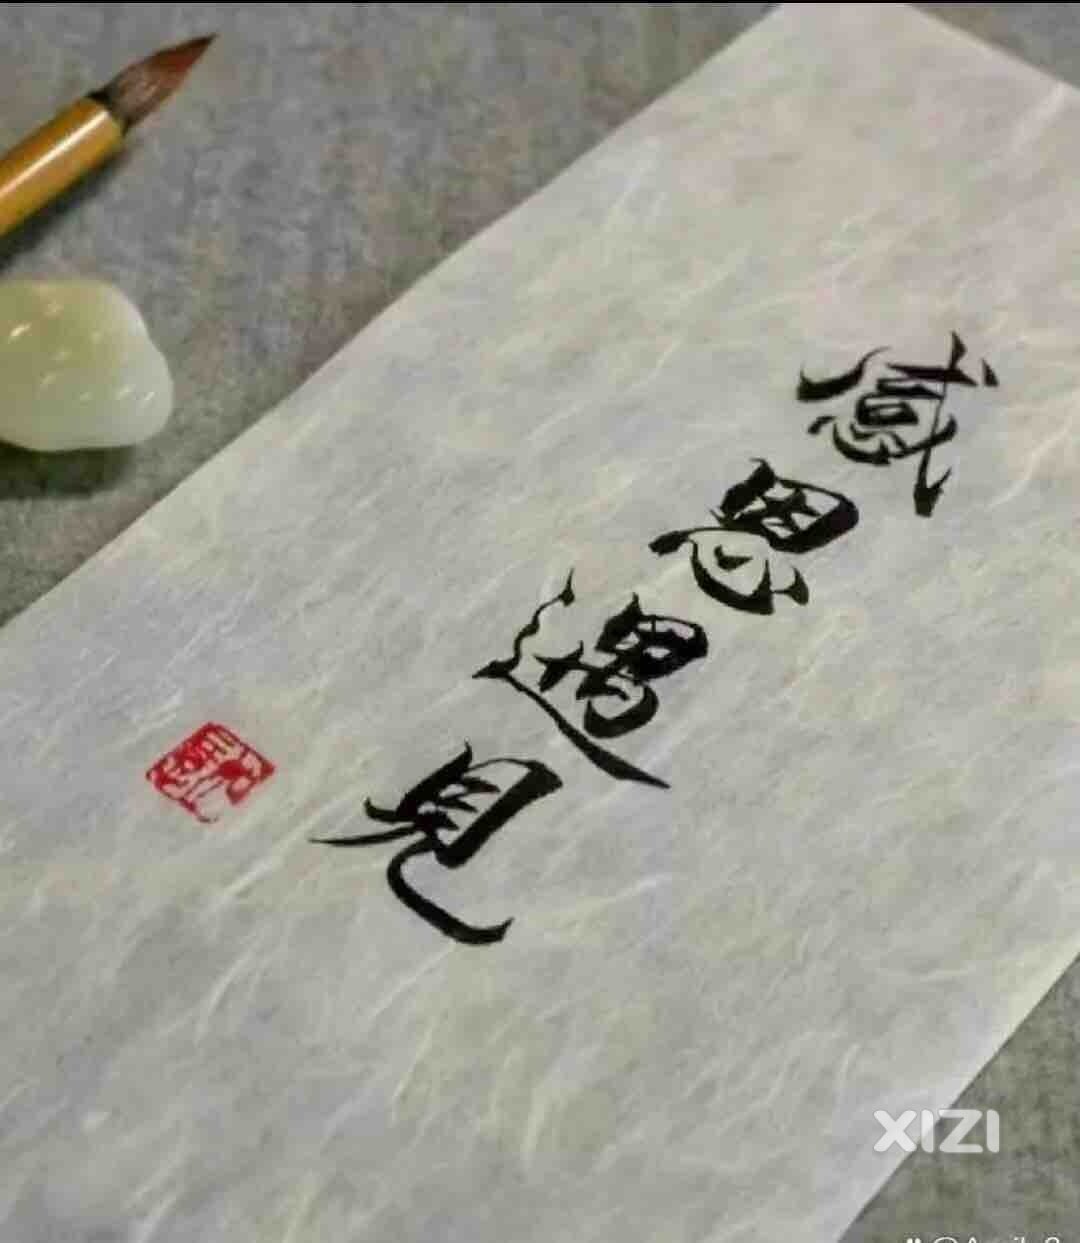 感恩遇見
XIZI